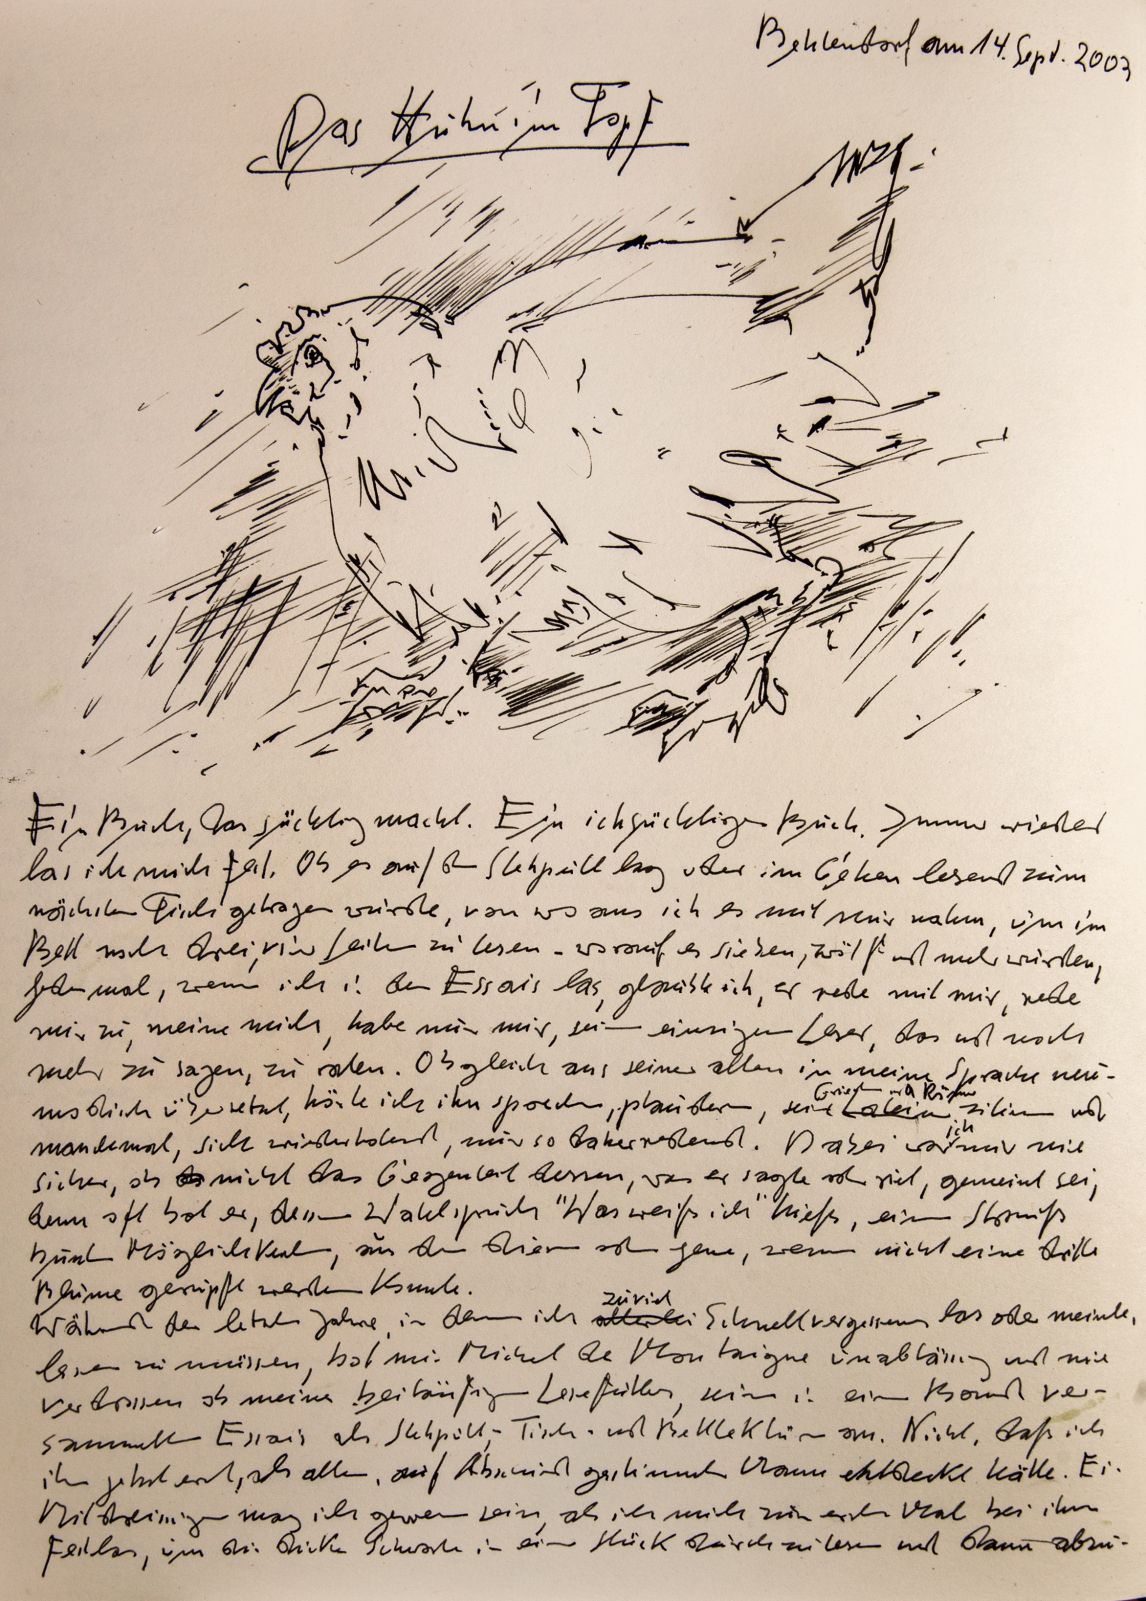 Behlendorf am 14. Sept. 2003
Das Huhn im Topf
Ein Buch, das süchtig macht. Ein ichsüchtiges Buch. Immer wieder
las ich mich fest. Ob es auf dem Stehpult lag oder im Gehen lesend zum
nächsten Tisch getragen wurde, von wo aus ich es mit mir nahm, um im
Bett noch drei, vier Seiten zu lesen - worauf es sieben, zwölf und mehr wurden,
jedesmal, wenn ich in den Essais las, glaubte ich, er rede mit mir, rede
mir zu, meine mich, habe nur mir, seinem einzigen Leser, das und noch
mehr zu sagen, zu raten. Obgleich aus seiner alten in meine Sprache neu-
modisch übersetzt, hörte ich ihn sprechen, plaudern, seine Latein zitieren und
Griechen und Römer
manchmal, sich wiederholend, nur so daherredend. Dabei war mir nie
ich
sicher, ob nicht das Gegenteil dessen, was er sagte oder riet, gemeint sei,
denn oft bot er, dessen Wahlspruch "Was weiß ich" hieß, einen Strauß
bunter Möglichkeiten, aus dem diese oder jene, wenn nicht eine dritte
Blume gerupft werden konnte.
Während der letzten Jahre, in denen ich allerlei Schnellvergessenes las oder meinte,
zuviel
lesen zu müssen, bot mir Michel de Montaigne unablässig und nie
verdrossen ob meiner beiläufigen Lesefüllen, seine in einem Band ver-
sammelten Essais als Stehpult-, Tisch- und Bettlektüre an. Nicht, daß ich
ihn jetzt erst, als alter, auf Abschied gestimmter Mann entdeckt hätte. Ei-
Mitdreißiger mag ich gewesen sein, als ich mich zum ersten Mal bei ihm
festlas, um die dicke Schwarte in einem Stück durchzulesen und dann abzu-